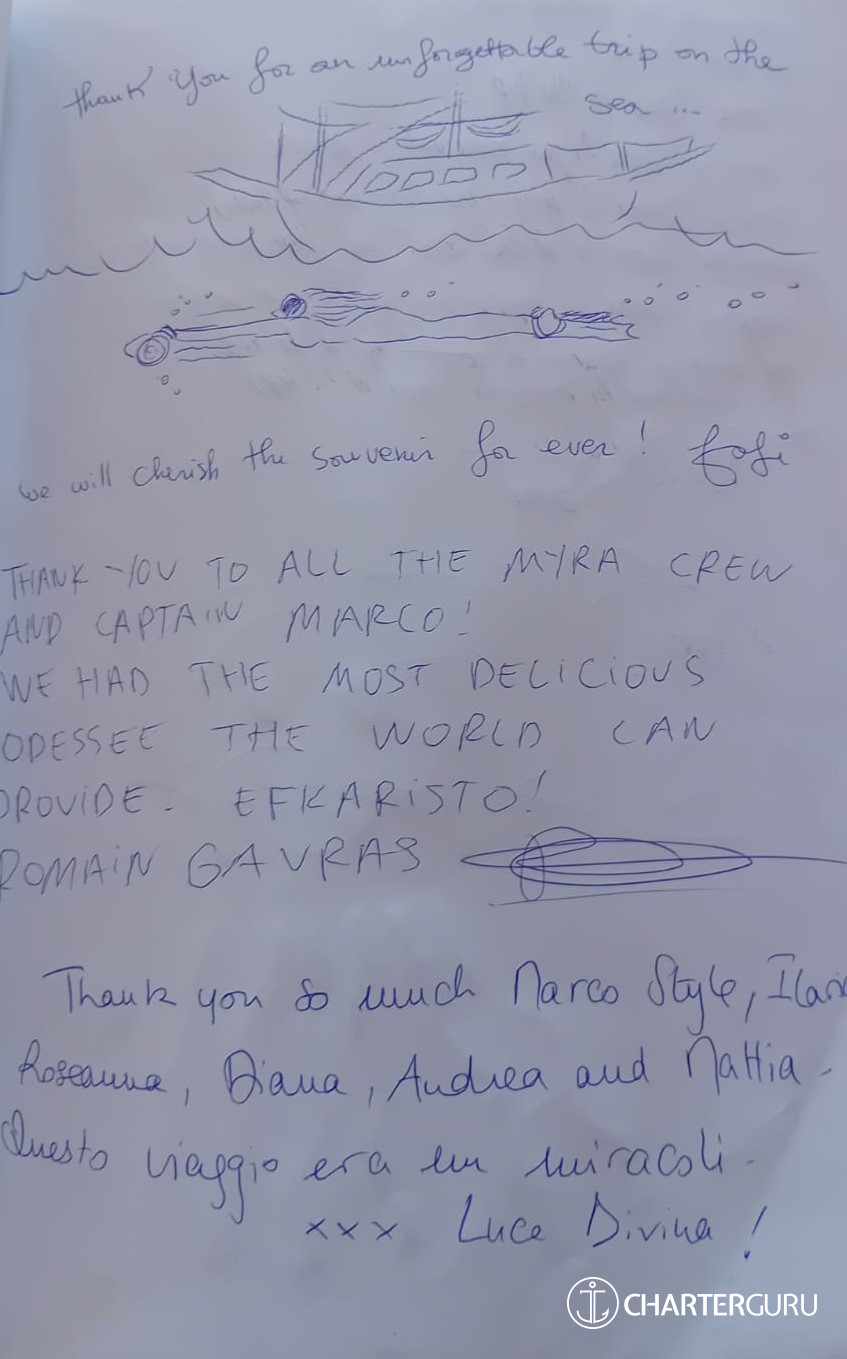 thank you for an unforgettable trip on the
sea ...
we will cherish the souvenir for ever !
THANK-YOU TO ALL THE MYRA CREW
AND CAPTAIN MARCO!
WE HAD THE MOST DELICIOUS
ODESSEE THE WORLD CAN
PROVIDE. EFKARISTO!
ROMAIN GAVRAS
Thank you so much Marco Style,
Roseanna, Diana, Andrea and Mattia.
Questo viaggio era un miracoli.
xxx Luce Divina!
CHARTERGURU